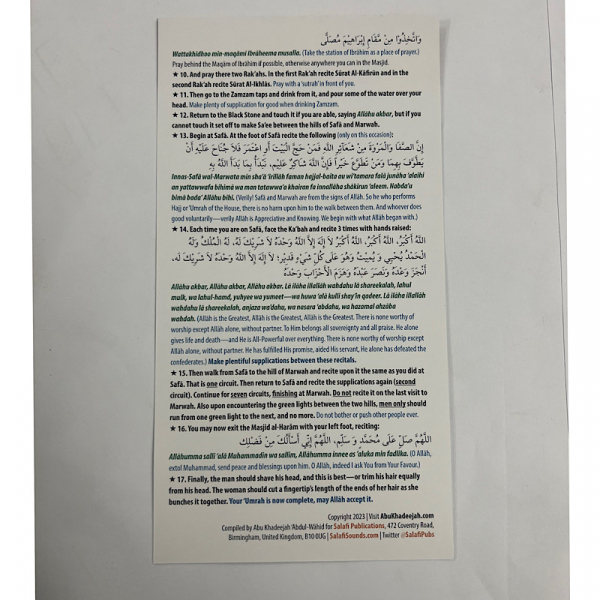 وَاتَّخِذُوا مِنْ مَقَامِ إِبْرَاهِيمَ مُصَلًّى
Wattakhidhoo min-maqāmi Ibrāheema musalla. (Take the station of Ibrāhīm as a place of prayer.)
Pray behind the Maqām of Ibrāhīm if possible, otherwise anywhere you can in the Masjid.
★ 10. And pray there two Rak'ahs. In the first Rak'ah recite Sūrat Al-Kāfirūn and in the
second Rak'ah recite Sūrat Al-Ikhlās. Pray with a 'sutrah' in front of you.
★ 11. Then go to the Zamzam taps and drink from it, and pour some of the water over your
head. Make plenty of supplication for good when drinking Zamzam.
★ 12. Return to the Black Stone and touch it if you are able, saying Allāhu akbar, but if you
cannot touch it set off to make Sa'ee between the hills of Safā and Marwah.
★ 13. Begin at Safā. At the foot of Safā recite the following (only on this occasion):
إِنَّ الصَّفَا وَالْمَرْوَةَ مِنْ شَعَائِرِ اللَّهِ فَمَنْ حَجَّ الْبَيْتَ أَوِ اعْتَمَرَ فَلَا جُنَاحَ عَلَيْهِ أَنْ
يَطَّوَّفَ بِهِمَا وَمَنْ تَطَوَّعَ خَيْرًا فَإِنَّ اللَّهَ شَاكِرٌ عَلِيمٌ، نَبْدَأُ بِمَا بَدَأَ اللَّهُ بِهِ
Innas-Safā wal-Marwata min sha'ā'irillāh faman hajjal-baita au wi'tamara falā junāha 'alaihi
an yattawwafa bihimā wa man tatawwa'a khairan fa innallāha shākirun 'aleem. Nabda'u
bimā bada' Allāhu bihi. (Verily! Safā and Marwah are from the signs of Allāh. So he who performs
Hajj or 'Umrah of the House, there is no harm upon him to the walk between them. And whoever does
good voluntarily—verily Allāh is Appreciative and Knowing. We begin with what Allāh began with.)
★ 14. Each time you are on Safā, face the Ka'bah and recite 3 times with hands raised:
اللَّهُ أَكْبَرُ، اللَّهُ أَكْبَرُ، اللَّهُ أَكْبَرُ لَا إِلَهَ إِلَّا اللَّهُ وَحْدَهُ لَا شَرِيكَ لَهُ، لَهُ الْمُلْكُ وَلَهُ
الْحَمْدُ يُحْيِي وَ يُمِيتُ وَهُوَ عَلَى كُلِّ شَيْءٍ قَدِيرٌ؛ لَا إِلَهَ إِلَّا اللَّهُ وَحْدَهُ لَا شَرِيكَ لَهُ،
أَنْجَزَ وَعْدَهُ وَنَصَرَ عَبْدَهُ وَهَزَمَ الْأَحْزَابَ وَحْدَهُ
Allāhu akbar, Allāhu akbar, Allāhu akbar. Lā ilāha illallāh wahdahu lā shareekalah, lahul
mulk, wa lahul-hamd, yuhyee wa yumeet—wa huwa 'alā kulli shay'in qadeer. Lā ilāha illallāh
wahdahu lā shareekalah, anjaza wa'dahu, wa nasara 'abdahu, wa hazamal ahzāba
wahdah. (Allāh is the Greatest, Allāh is the Greatest, Allāh is the Greatest. There is none worthy of
worship except Allāh alone, without partner. To Him belongs all sovereignty and all praise. He alone
gives life and death—and He is All-Powerful over everything. There is none worthy of worship except
Allāh alone, without partner. He has fulfilled His promise, aided His Servant, He alone has defeated the
confederates.) Make plentiful supplications between these recitals.
★ 15. Then walk from Safā to the hill of Marwah and recite upon it the same as you did at
Safā. That is one circuit. Then return to Safā and recite the supplications again (second
circuit). Continue for seven circuits, finishing at Marwah. Do not recite it on the last visit to
Marwah. Also upon encountering the green lights between the two hills, men only should
run from one green light to the next, and no more. Do not bother or push other people ever.
★ 16. You may now exit the Masjid al-Harām with your left foot, reciting:
اللَّهُمَّ صَلِّ عَلَى مُحَمَّدٍ وَ سَلِّمْ، اللَّهُمَّ إِنِّي أَسْأَلُكَ مِنْ فَضْلِكَ
Allāhumma salli 'alā Muhammadin wa sallim, Allāhumma innee as 'aluka min fadlika. (O Allāh,
extol Muhammad, send peace and blessings upon him. O Allāh, indeed I ask You from Your Favour.)
★ 17. Finally, the man should shave his head, and this is best—or trim his hair equally
from his head. The woman should cut a fingertip's length of the ends of her hair as she
bunches it together. Your 'Umrah is now complete, may Allāh accept it.
Copyright 2023 | Visit AbuKhadeejah.com
Compiled by Abu Khadeejah 'Abdul-Wāhid for Salafi Publications, 472 Coventry Road,
Birmingham, United Kingdom, B10 0UG | SalafiSounds.com | Twitter @SalafiPubs